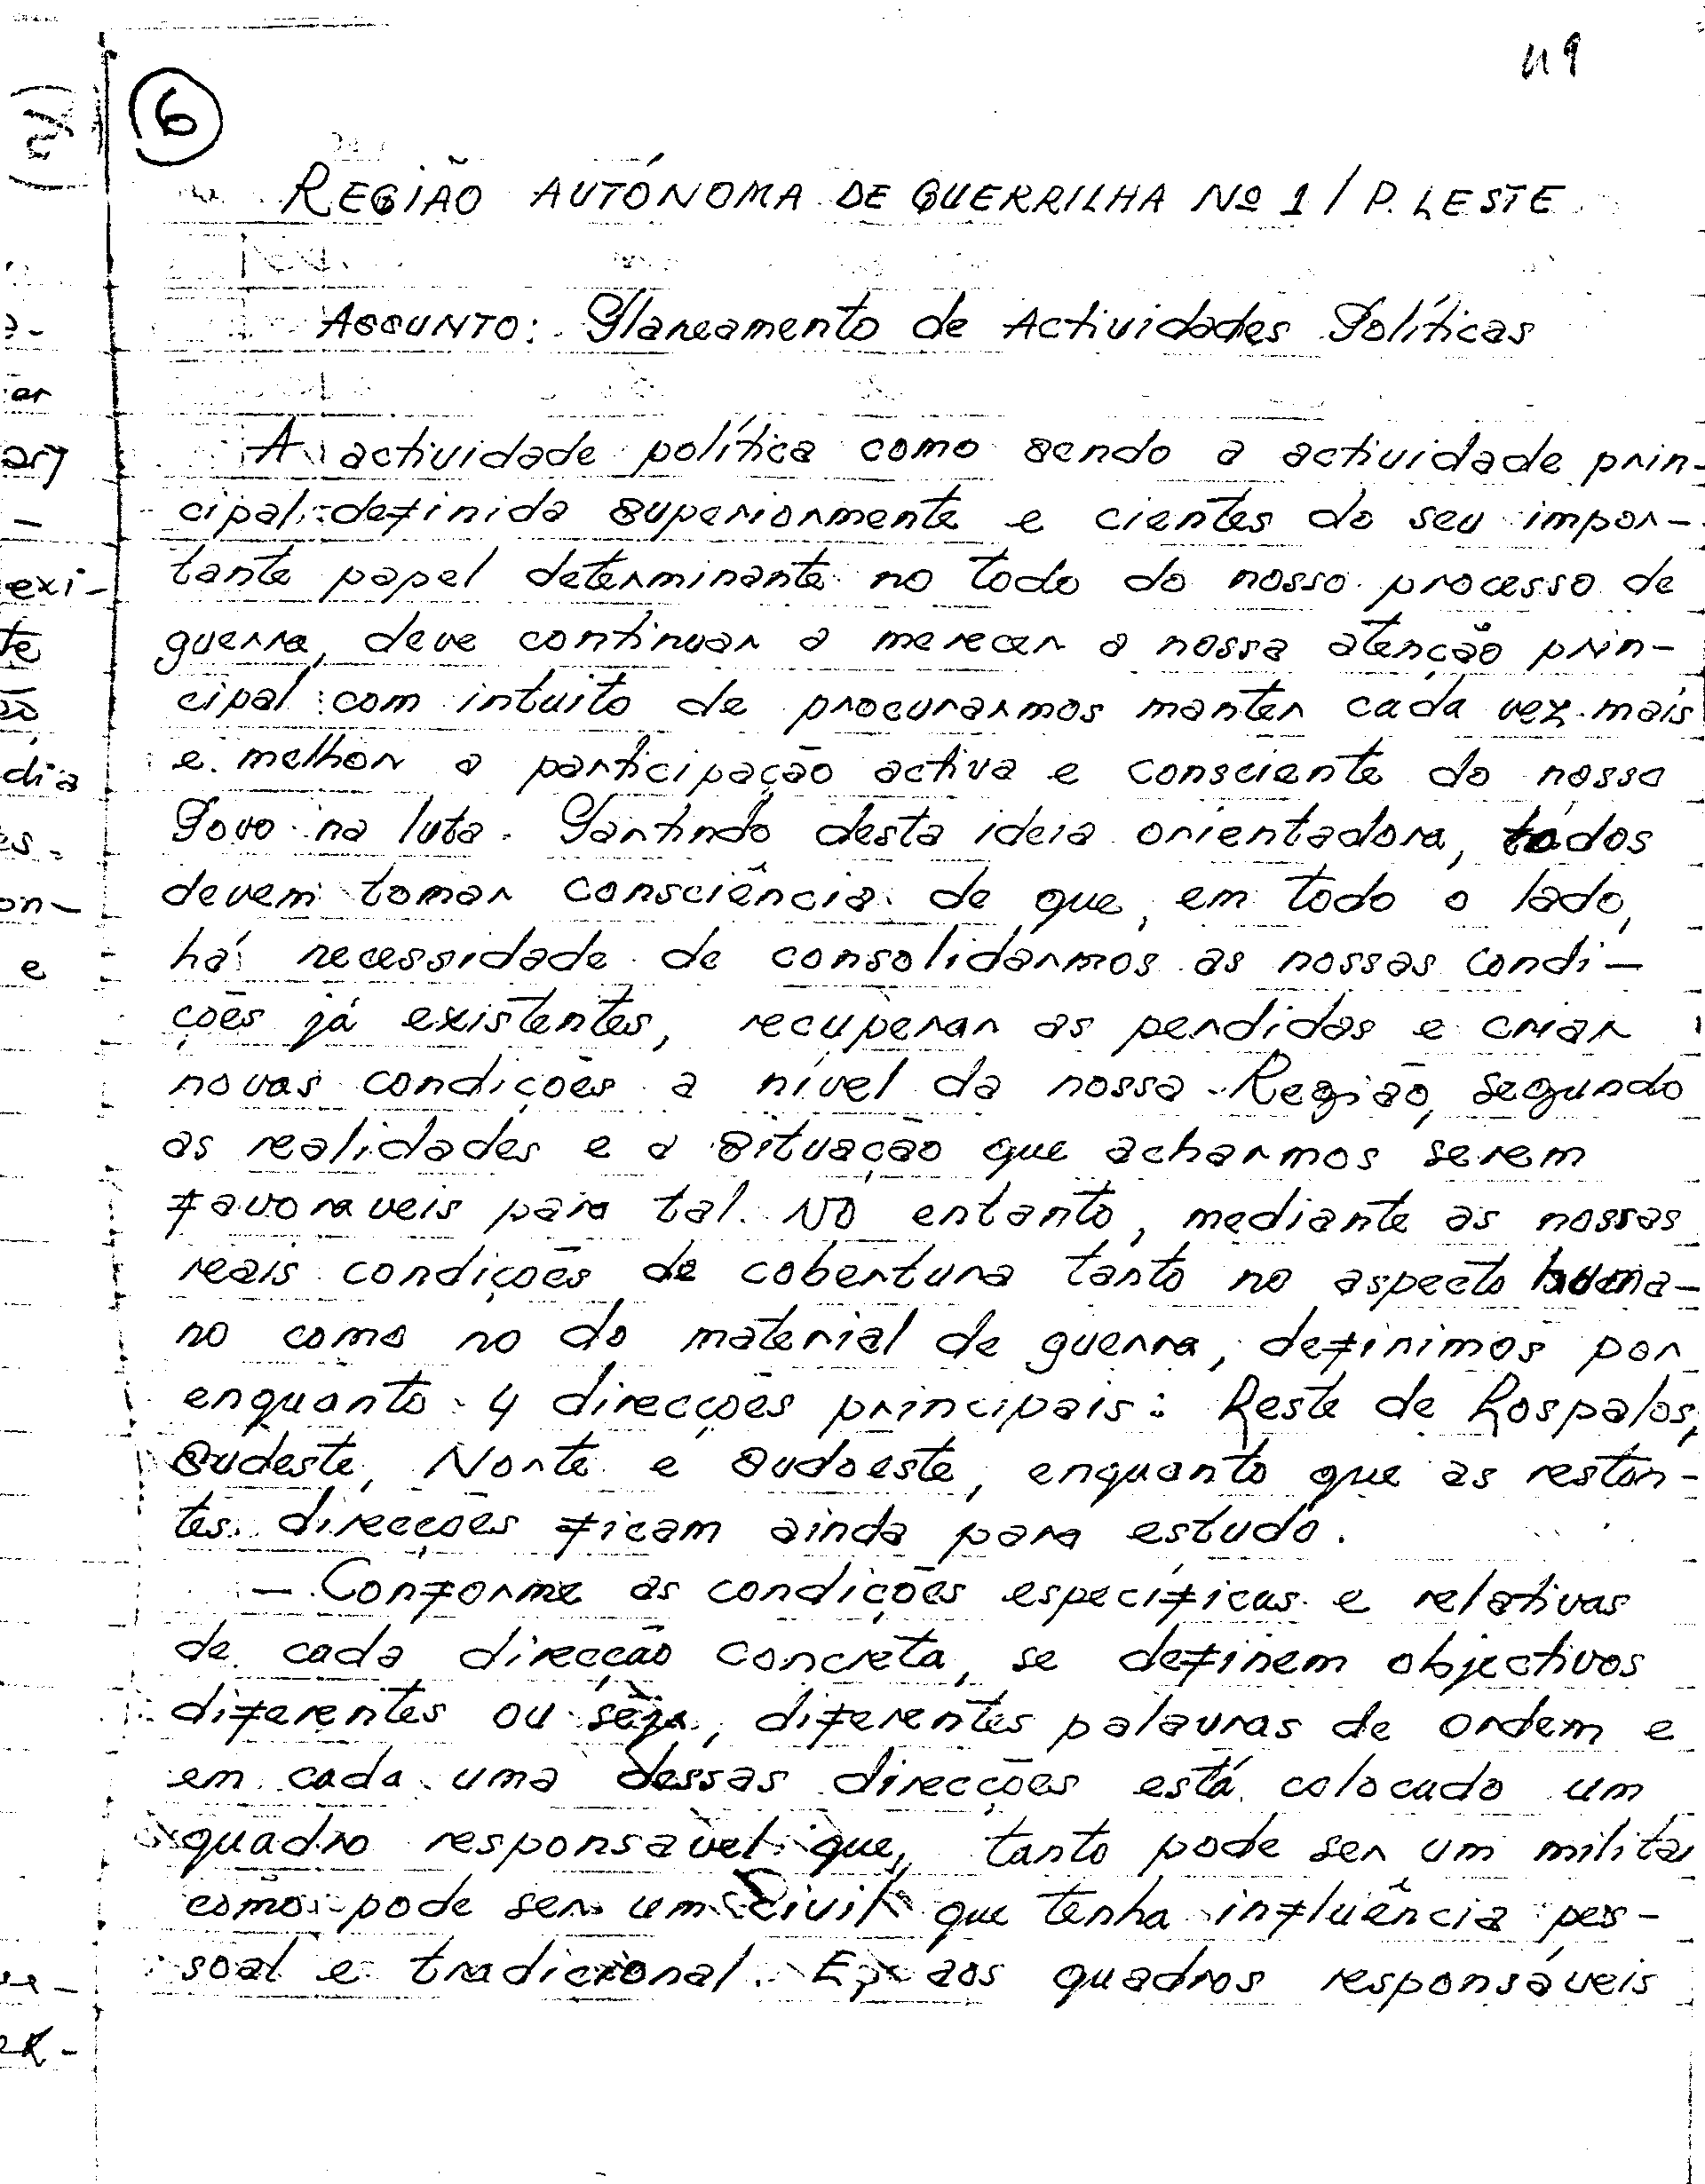 49
6
REGIÃO AUTÓNOMA DE GUERRILHA Nº 1 / P. LESTE
ASSUNTO: Planeamento de Actividades Políticas
A actividade política como sendo a actividade prin-
cipal definida superiormente e cientes do seu impor-
tante papel determinante no todo do nosso processo de
guerra, deve continuar a merecer a nossa atenção prin-
cipal com intuito de procurarmos manter cada vez mais
e melhor a participação activa e consciente do nosso
Povo na luta. Partindo desta ideia orientadora, todos
devem tomar consciência de que, em todo o lado,
há necessidade de consolidarmos as nossas condi-
ções já existentes, recuperar as perdidas e criar
novas condições a nível da nossa Região, segundo
as realidades e a situação que acharmos serem
favoraveis para tal. No entanto, mediante as nossas
reais condições de cobertura tanto no aspecto huma-
no como no do material de guerra, definimos por
enquanto 4 direcções principais: Leste de Lospalos,
Sudeste, Norte e Sudoeste, enquanto que as restan-
tes direcções ficam ainda para estudo.
- Conforme as condições específicas e relativas
de cada direcção concreta, se definem objectivos
diferentes ou seja, diferentes palavras de ordem e
em cada uma dessas direcções está colocado um
quadro responsável que, tanto pode ser um milita
como pode ser um civil que tenha influência pes-
soal e tradicional. E, aos quadros responsáveis
ar
exi-
te
dia
es.
on-
e